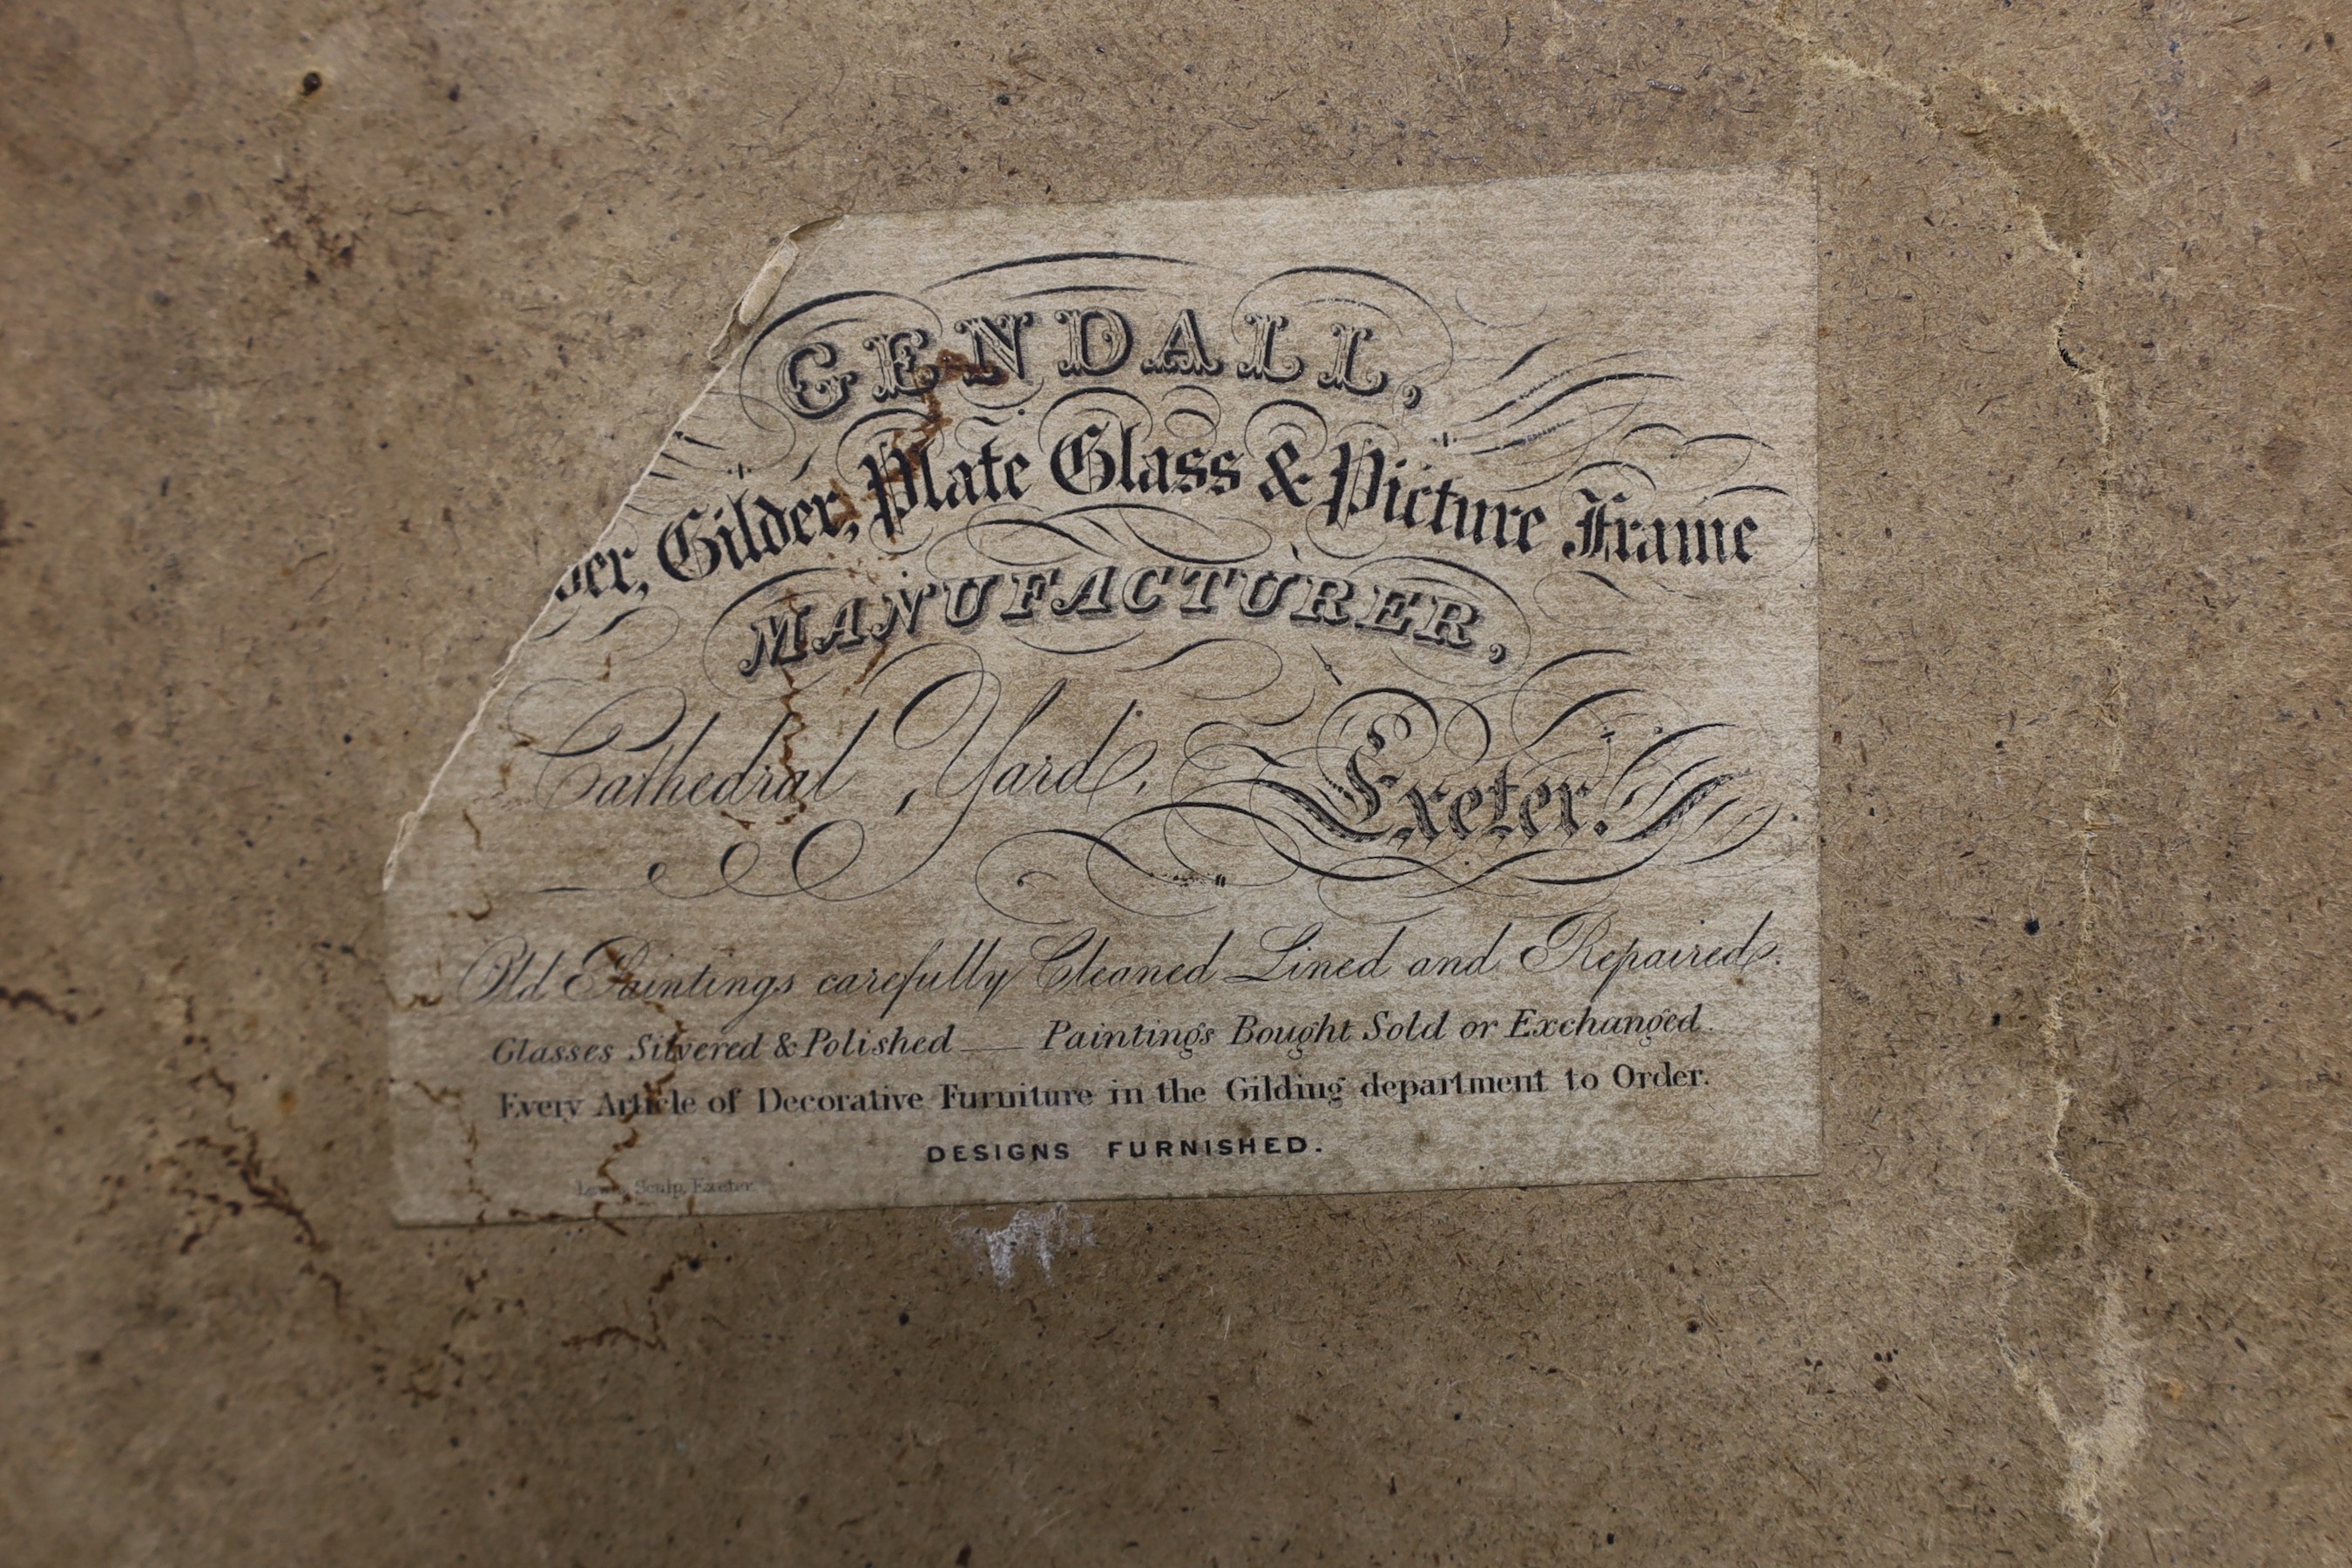 GENDALL,
der, Gilder, Plate Glass & Picture Frame
MANUFACTURER,
Cathedral Yard, Exeter.
Old Paintings carefully Cleaned Lined and Repaired.
Glasses Silvered & Polished — Paintings Bought Sold or Exchanged.
Every Article of Decorative Furniture in the Gilding department to Order.
DESIGNS FURNISHED.
Sculp. Exeter.